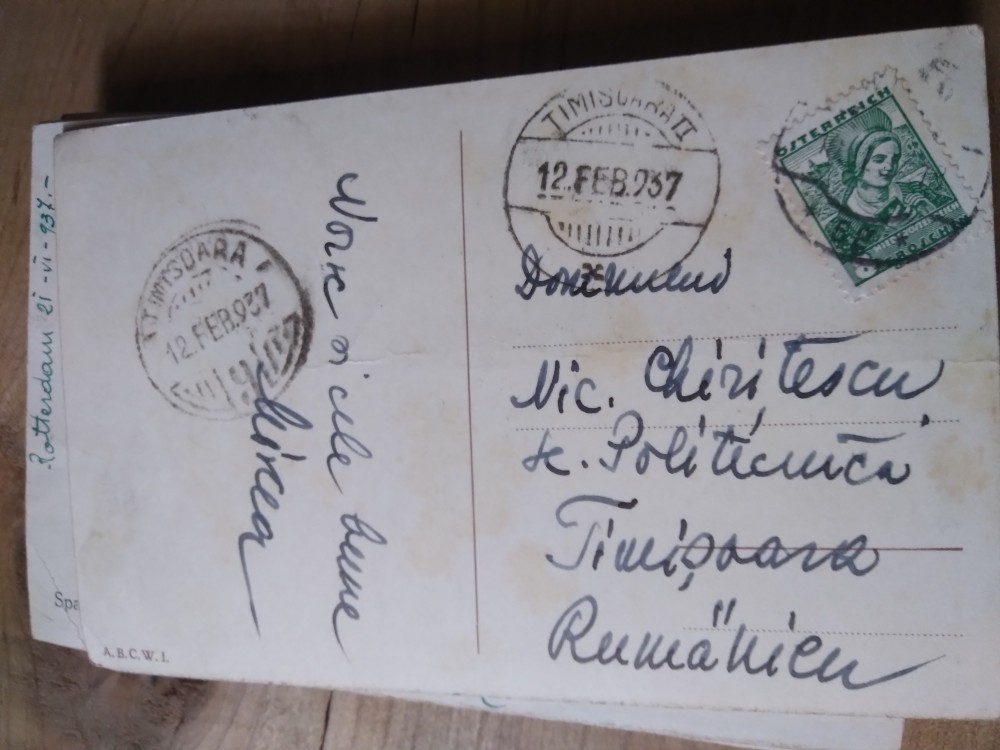 Rotterdam 21-VI-937.-
Spa
A.B.C.W.I.
TIMISOARA I
12.FEB.937
Noroc și zile bune
Mircea
TIMISOARA II
12.FEB.937
ÖSTERREICH
GROSCHEN
Domnului
Nic. Chirițescu
Șc. Politecnică
Timișoara
Rumänien